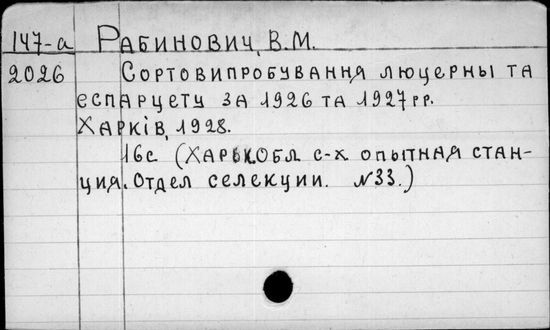 147-а Рабинович, В.М.
2026 Сортовипробування люцерны та
еспарцету за 1926 та 1927 рр.
Харків, 1928.
16с (Харьк.обл с-х опытная стан-
ция. Отдел селекции. №33.)